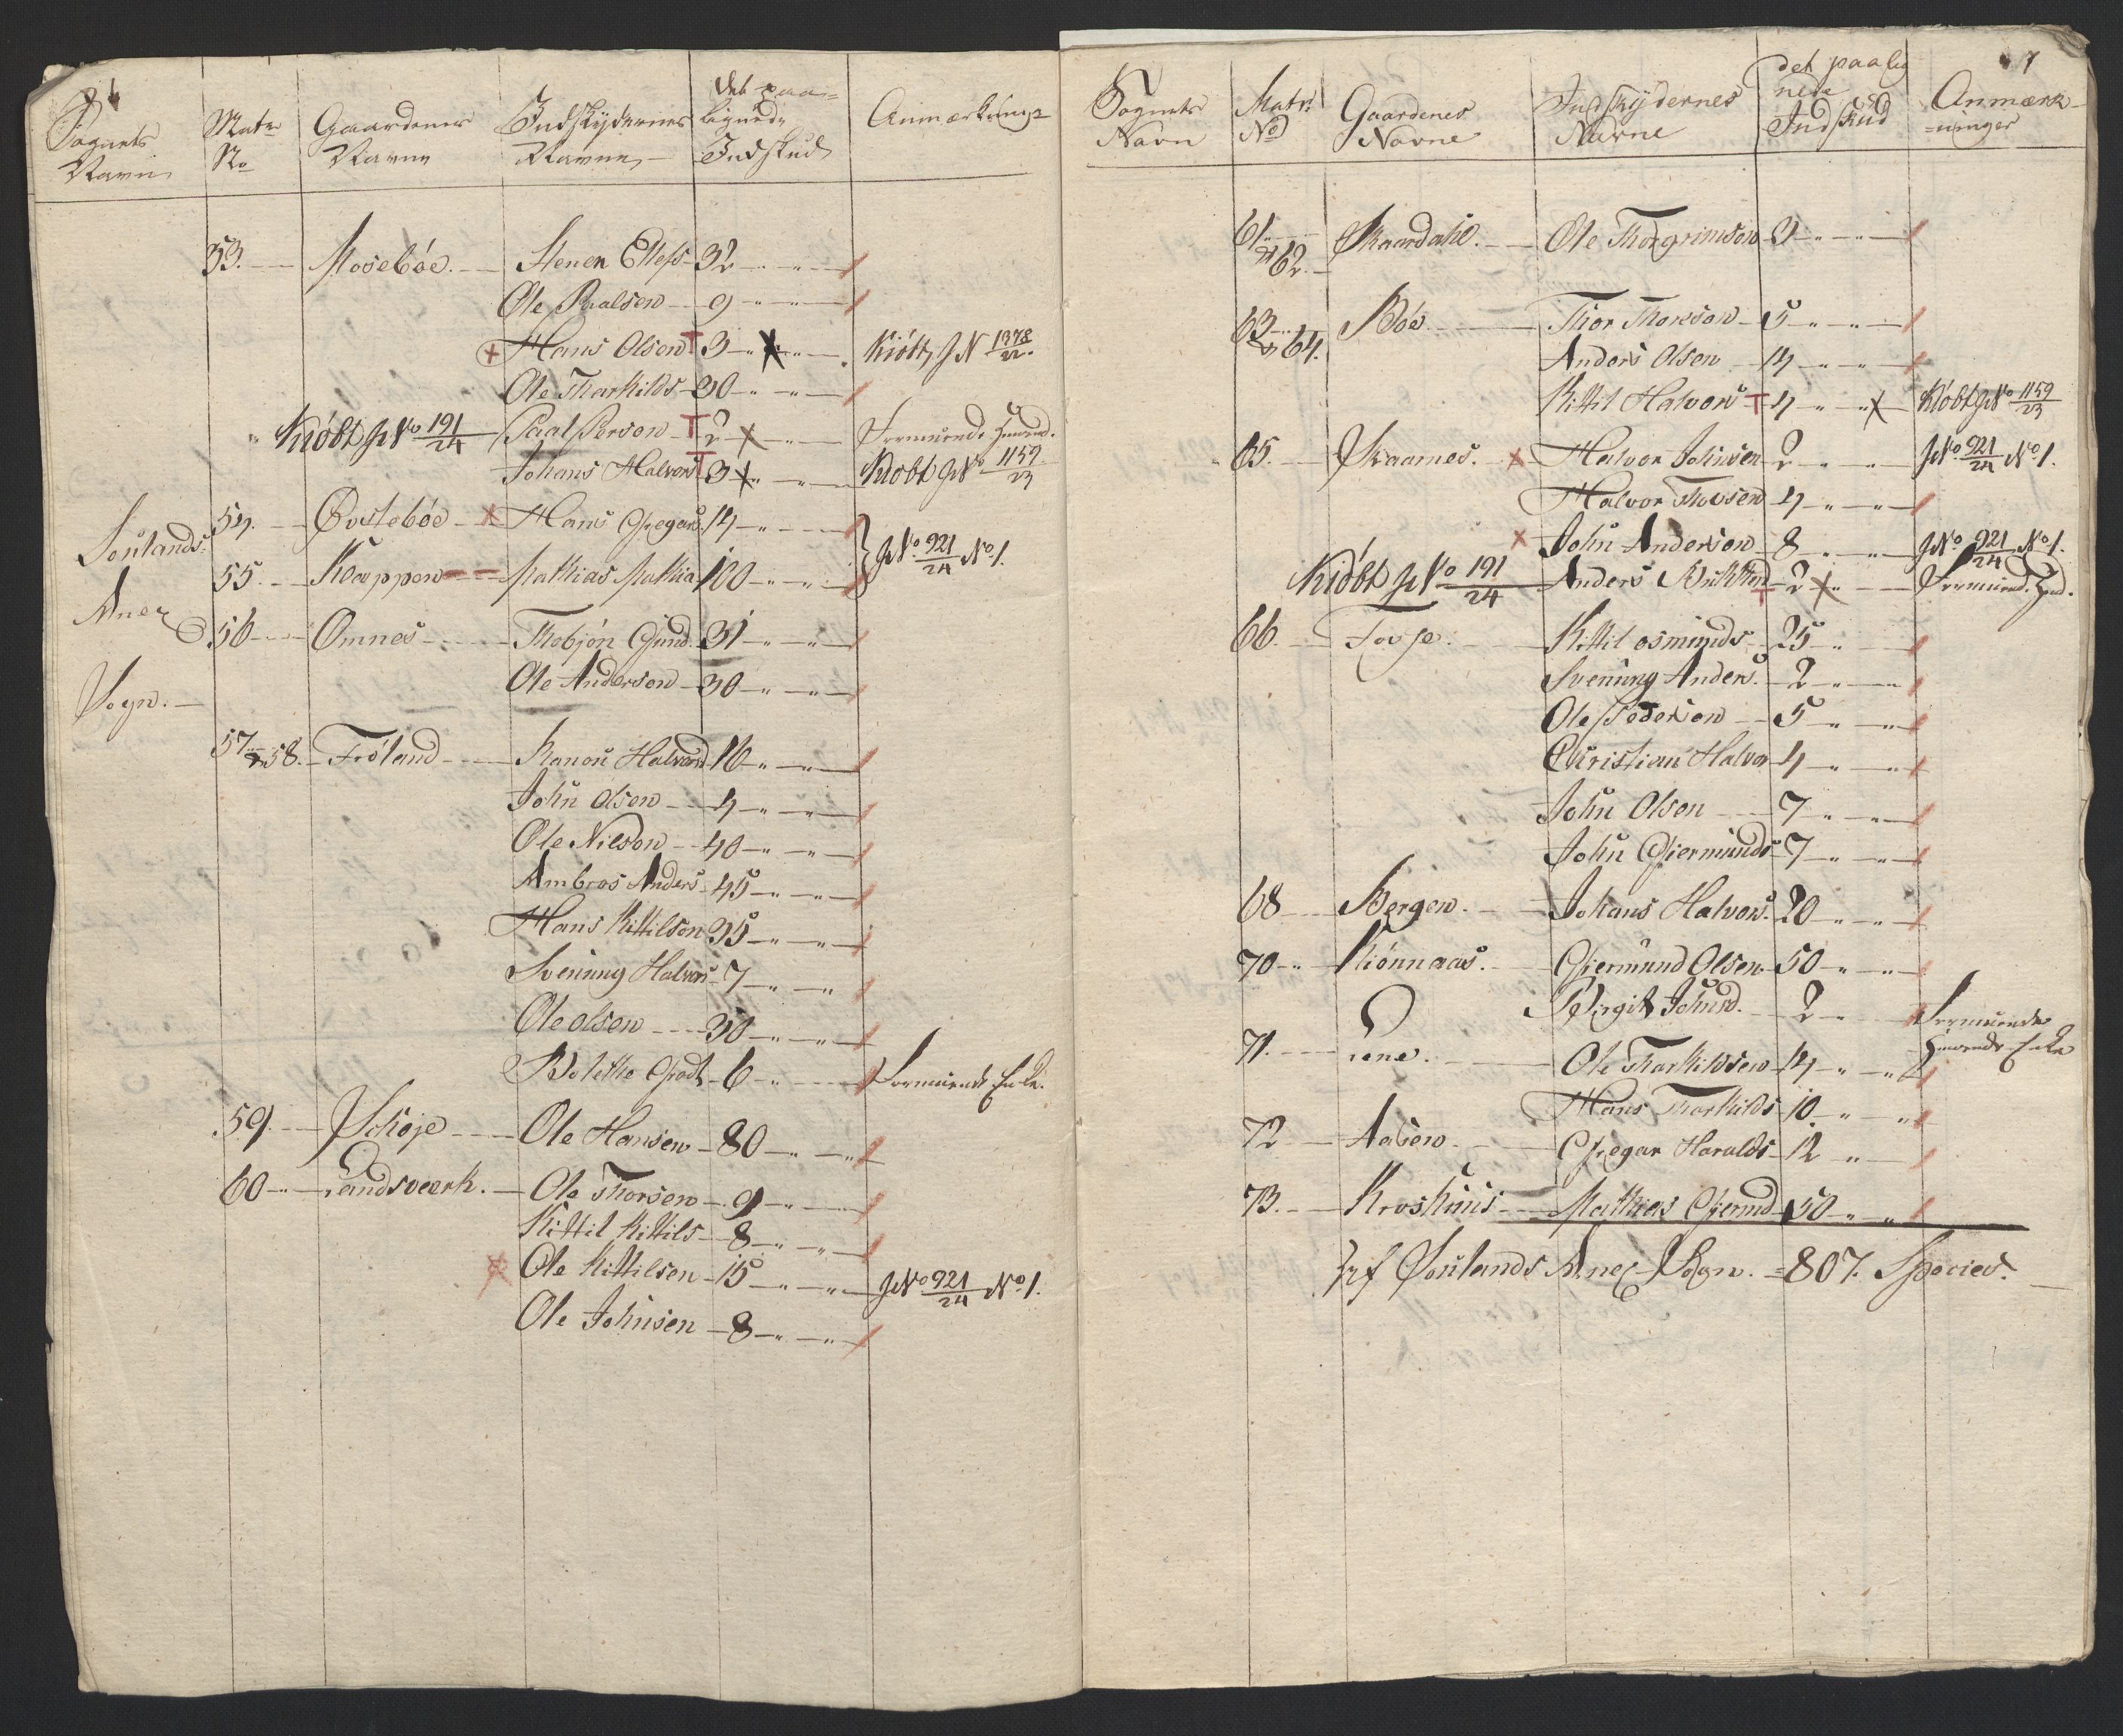 6
Sognets Navn
Matr No
Gaardenes Navne
Indskydernes Navne
det paalignede Indskud
Anmærkninge
53. Mosebøe. Stenen Ellefs 32
Ole Paalsen 9
Hans Olsen 3 Kiøbt, J N 1378/22.
Ole Tharkilds 30
Kiøbt J No 191/24 Paal Person 2
Johans Halvors 3 Kiøbt J No 1159/23
Soulands Anex Sogn.
54. Øvstebøe Hans Gregars. 14
55. Kleppen Mathias Mathia 100 J No. 921/24 No 1.
56 Omnes Thobjön Gund. 31
Ole Anderson 30
57 & 58. Fröland Kanou Halvord 16
John Olsen 4
Ole Nilson 40
Ambros Anders 45
Hans Kittilson 35
Svenung Halvors 7
Ole olsen 30
Bolethe Grodt 6 Formuende Enke.
59. Schoje Ole Hansen 80
60 Landsværk. Ole Thorsen 9
Kittil Kittils 8
Ole Kittilsen 15 J No 921/24 No 1.
Ole Johnsen 8
7
Sognets Navn
Matr: No
Gaardenes Navne
Indskydernes Navne
det paalignede Indskud
Anmærkninger
61 & 62. Skaardahl. Ole Thorgrimson 3
63 & 64. Bóe Thor Thorson 5
Anders Olsen 14
Kittil Halvors 4 Kiøbt J No 1159/23
65. Skaarnes. Halvor Johnsen 2 J No. 921/24 No 1.
Halvor Thorsen 4
John Anderson 8 J No 921/24 No 1.
Kiøbt J No 191/24 Anders 2
66. Fovse. Kittil osmunds 25
Svenung Anders. 2
Ole Pederson 5
Christian Halvor 4
John Olsen 7
John Giermunds 7
68 Bergen. Johans Halvors. 20
70 Kiönnaas. Giermund Olsen 50
Birgit Johnsd. 2 Formuende Enke
71. Lene. Ole Tharkildsen 14
Hans Tharkilds 10
72 Aasen Gregar Haralds 12
73. Kroskuus Mathias Giermd 50
Soulands Anex Sogn. = 807. Species.